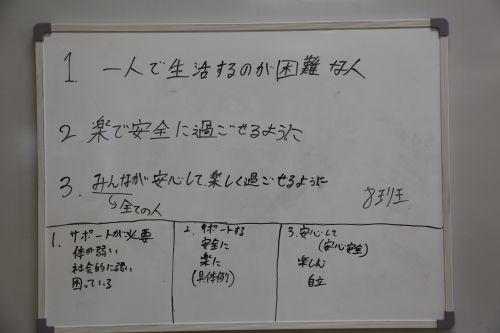 1. 一人で生活するのが困難な人
2. 楽で安全に過ごせるように
3. みんなが安心して、楽しく過ごせるように
↳全ての人
8班
1. サポートが必要
体が弱い
社会的に弱い
困っている
2. サポートする
安全に
楽に
(具体例)
3. 安心して
(安心安全)
楽しむ
自立